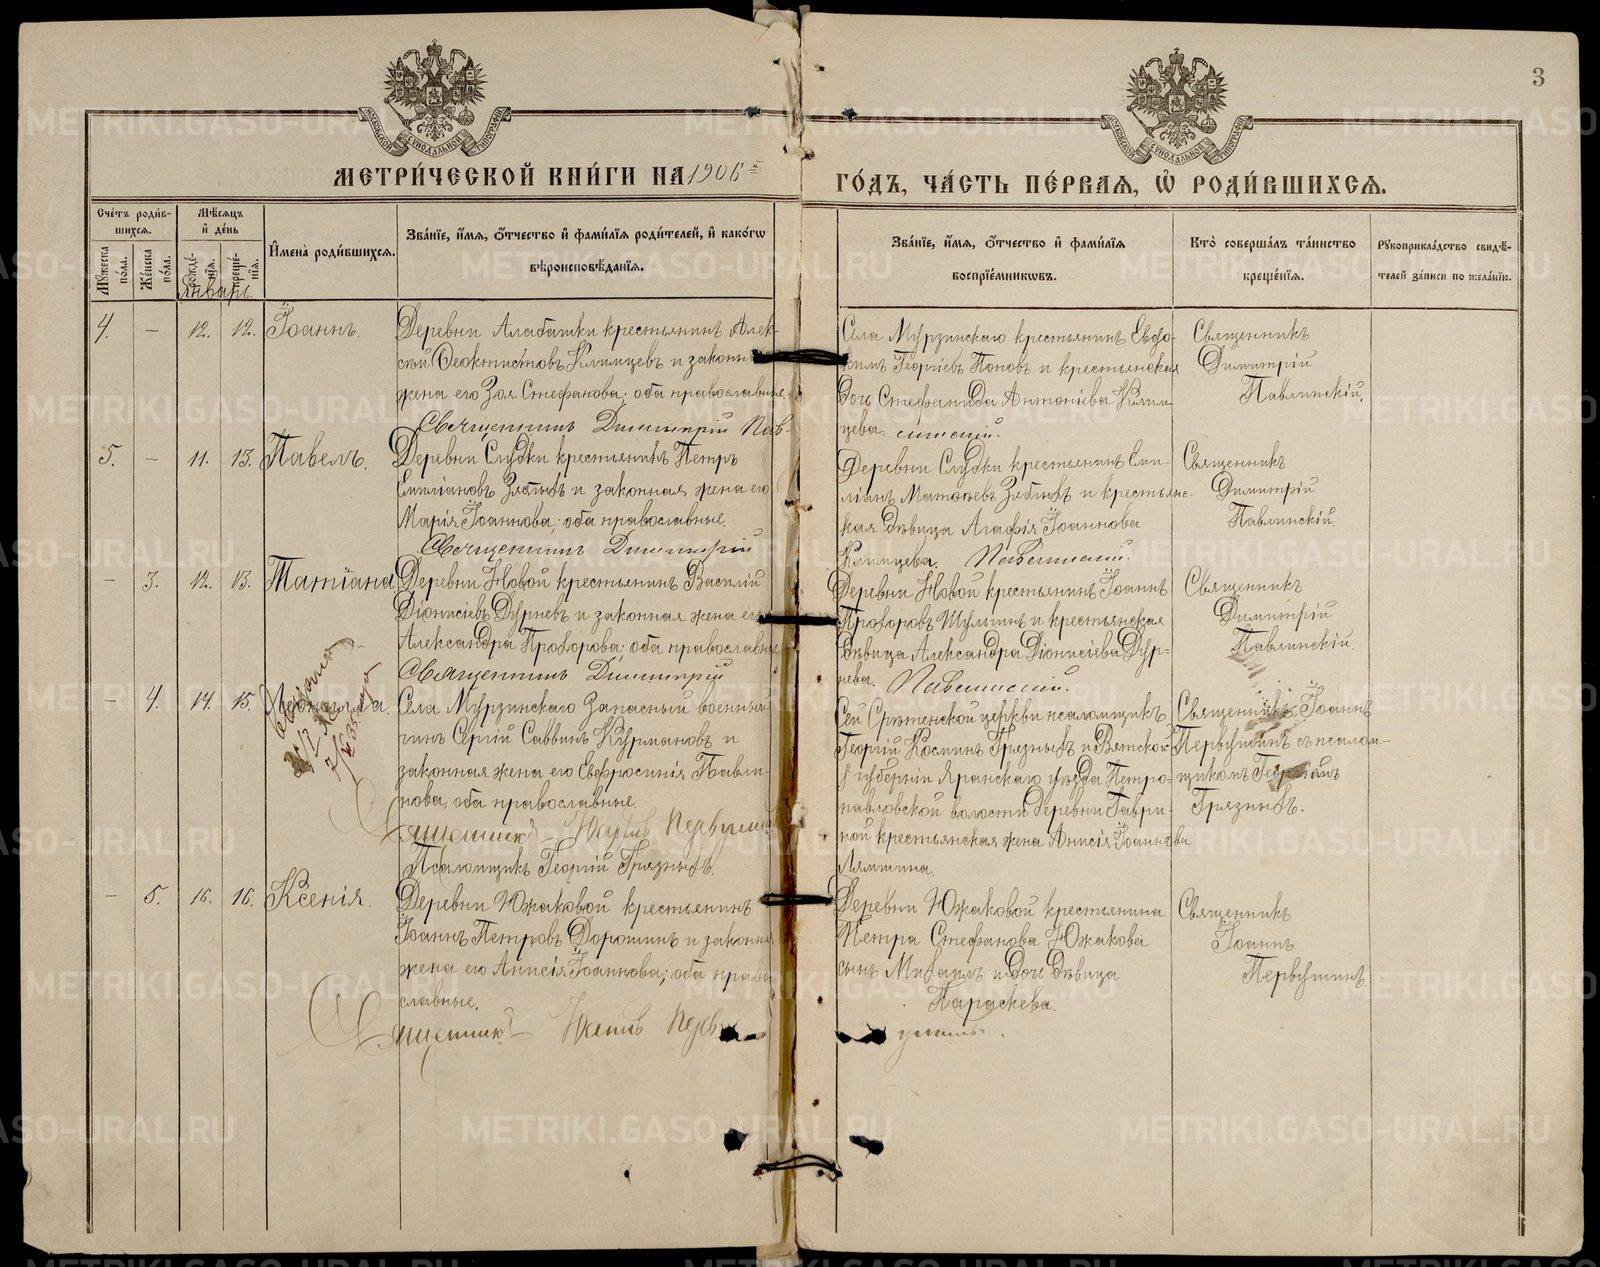 3
МЕТРИ́ЧЕСКОЙ КНИ́ГИ НА 1906
ГО́ДЪ, ЧА́СТЬ ПЕ́РВАЯ, Ѡ҆ РОДИ́ВШИХСЯ.
Сче́тъ роди́в-
шихся.
Му́жеска по́ла.
Же́нска по́ла.
Мѣ́сяцъ
и҆ де́нь
рожде́-
нїя.
креще́-
нїя.
И҆мена̀ роди́вшихся.
Зва́нїе, и҆́мя, ѻ҆́тчество и҆ фами́лїя роди́телей, и҆ како́гѡ
вѣроисповѣ́данїя.
Зва́нїе, и҆́мя, ѻ҆́тчество и҆ фами́лїя
воспрїе́мникѡвъ.
Кто̀ соверша́лъ та́инство
креще́нїя.
Рꙋкоприкла́дство свидѣ́-
телей за́писи по жела́нїю.
Январь.
4. — 12. 12. Іоаннъ.
Деревни Алабашки крестьянинъ Алек-
сѣй Ѳеоктистовъ Климцевъ и законн
жена его Зоя Стефанова; оба православные
Священникъ Димитрій Пав-
Села Мурзинскаго крестьянинъ Евдо-
кимъ Георгіевъ Поповъ и крестьянская
дочь Стефанида Антоніева Клим-
цева. линскій.
Священникъ
Димитрій
Павлинскій.
5. — 11. 13. Павелъ.
Деревни Слудки крестьянинъ Петръ
Емиліановъ Зяблыхъ и законная жена его
Марія Іоаннова; оба православные.
Священникъ Димитрій
Деревни Слудки крестьянинъ Еми-
ліанъ Матѳіевъ Зяблыхъ и крестьянс-
кая дѣвица Агафія Іоаннова
Климцева. Павлинскій.
Священникъ
Димитрій
Павлинскій.
— 3. 12. 13. Татіана
Деревни Новой крестьянинъ Василій
Діонисіевъ Дурневъ и законная жена его
Александра Прохорова; оба православные
Священникъ Димитрій
Деревни Новой крестьянинъ Іоаннъ
Прохоровъ Шулминъ и крестьянская
дѣвица Александра Діонисіева Дур-
нева. Павлинскій.
Священникъ
Димитрій
Павлинскій.
— 4. 14. 15.
Села Мурзинскаго Запасный военный
чинъ Сергій Саввинъ Курмановъ и
законная жена его Евфросинія Павли-
нова, оба православные.
Священникъ Іоаннъ Первушинъ
Псаломщикъ Георгій Грязныхъ.
Сей Срѣтенской церкви псаломщикъ
Георгій Косминъ Грязныхъ и Вятской
губерніи Яранскаго уѣзда Петро-
павловской волости деревни Гаври-
ной крестьянская жена Анисія Іоаннова
Лямшина.
Священникъ Іоаннъ
Первушинъ съ псалом-
щикомъ Георгіемъ
Грязныхъ.
— 5. 16. 16. Ксенія.
Деревни Южаковой крестьянинъ
Іоаннъ Петровъ Дорошинъ и законна
жена его Анисія Іоаннова; оба право
славные.
Священникъ Іоаннъ Перву
Деревни Южаковой крестьянина
Петра Стефанова Южакова
сынъ Михаилъ и дочь дѣвица
Параскева.
шинъ.
Священникъ
Іоаннъ
Первушинъ.